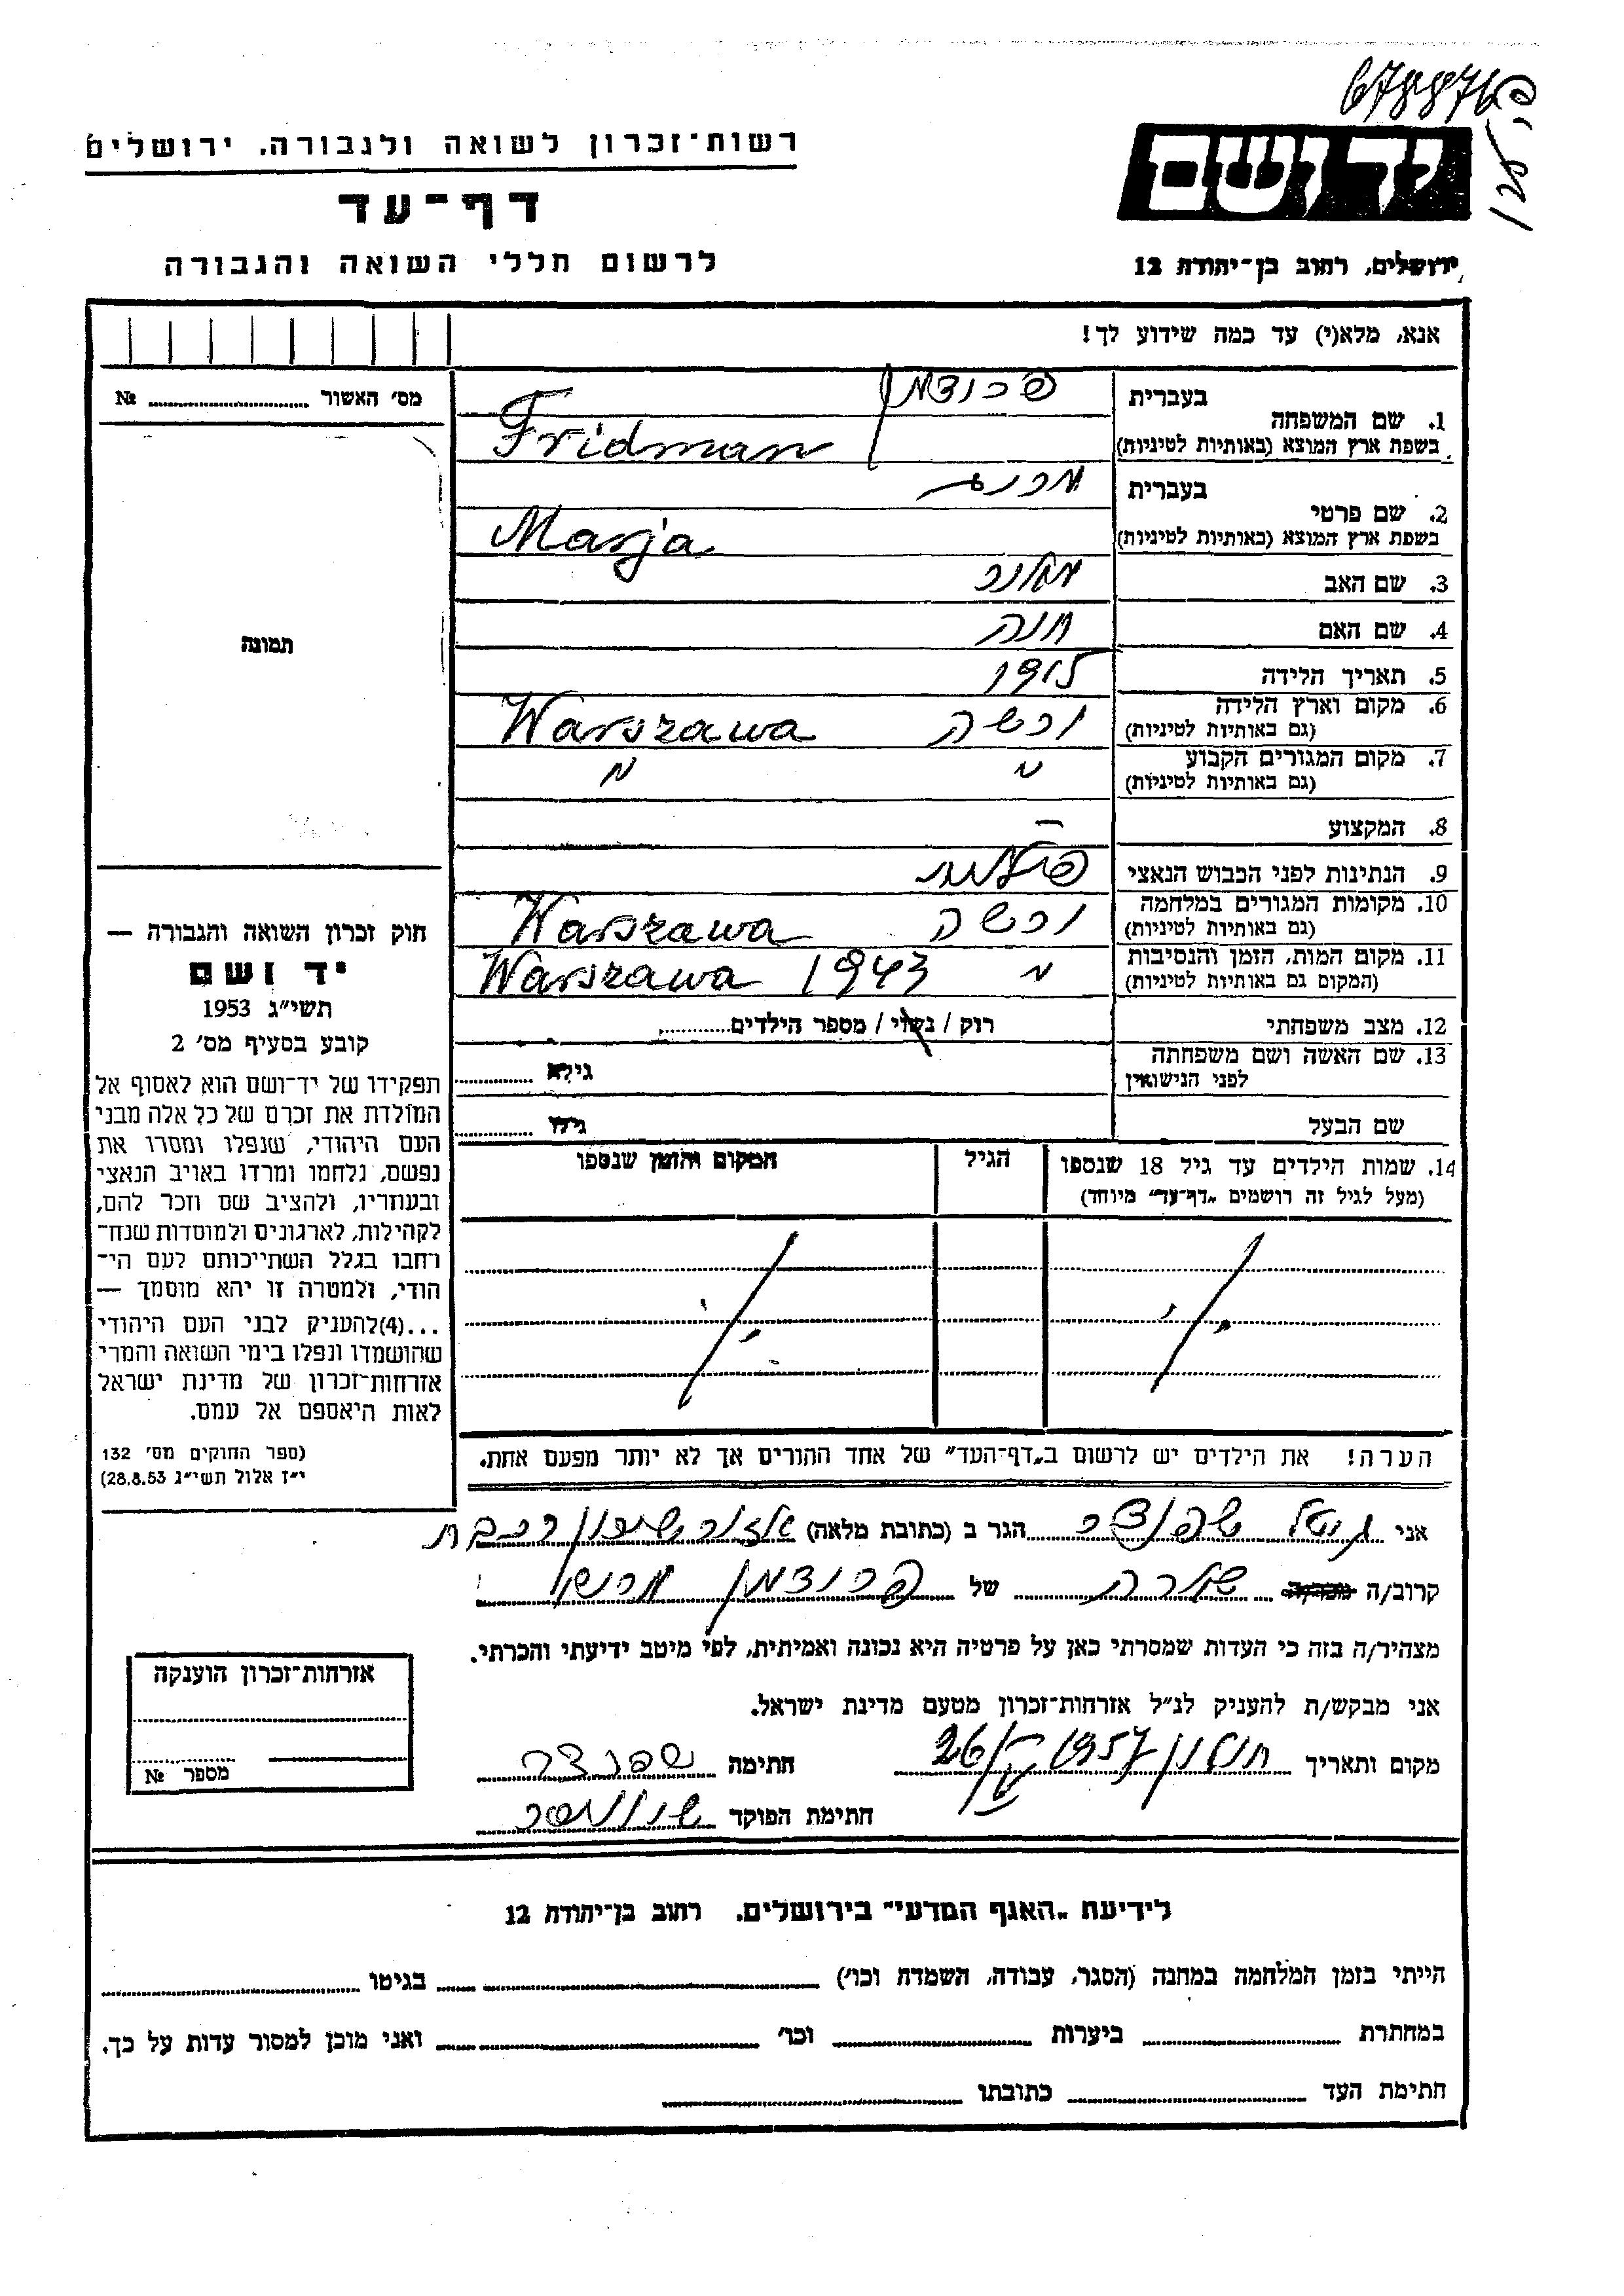 678876
רשות־זכרון לשואה ולגבורה, ירושלים
יד ושם
דף־עד
לרשום חללי השואה והגבורה
ירושלים, רחוב בן־יהודה 12
אנא, מלא(י) עד כמה שידוע לך!
מס׳ האשור № 
1. שם המשפחה בעברית פרידמן
בשפת ארץ המוצא (באותיות לטיניות) Fridman
2. שם פרטי בעברית
בשפת ארץ המוצא (באותיות לטיניות) Marja
3. שם האב מאיר
4. שם האם חנה
5. תאריך הלידה 1915
6. מקום וארץ הלידה (גם באותיות לטיניות) ורשה Warszawa
7. מקום המגורים הקבוע (גם באותיות לטיניות) " "
8. המקצוע —
9. הנתינות לפני הכבוש הנאצי פולנית
10. מקומות המגורים במלחמה (גם באותיות לטיניות) ורשה Warszawa
11. מקום המות, הזמן והנסיבות (המקום גם באותיות לטיניות) " 1943 Warszawa
12. מצב משפחתי רוק / נשוי / מספר הילדים
13. שם האשה ושם משפחתה לפני הנישואין גילה
שם הבעל גילו
14. שמות הילדים עד גיל 18 שנספו (מעל לגיל זה רושמים „דף־עד" מיוחד) הגיל המקום והזמן שנספו
תמונה
חוק זכרון השואה והגבורה —
יד ושם
תשי״ג 1953
קובע בסעיף מס׳ 2
תפקידו של יד־ושם הוא לאסוף אל
המולדת את זכרם של כל אלה מבני
העם היהודי, שנפלו ומסרו את
נפשם, נלחמו ומרדו באויב הנאצי
ובעוזריו, ולהציב שם וזכר להם,
לקהילות, לארגונים ולמוסדות שנח־
רחבו בגלל השתייכותם לעם הי־
הודי, ולמטרה זו יהא מוסמך —
...(4)להעניק לבני העם היהודי
שהושמדו ונפלו בימי השואה והמרי
אזרחות־זכרון של מדינת ישראל
לאות היאספם אל עמם.
(ספר החוקים מס׳ 132
י״ז אלול תשי״ג 28.8.53)
הערה! את הילדים יש לרשום ב„דף־העד" של אחד ההורים אך לא יותר מפעם אחת.
אני הגר ב (כתובת מלאה)
קרוב/ה מכר/ה של פרידמן
מצהיר/ה בזה כי העדות שמסרתי כאן על פרטיה היא נכונה ואמיתית, לפי מיטב ידיעתי והכרתי.
אני מבקש/ת להעניק לנ״ל אזרחות־זכרון מטעם מדינת ישראל.
מקום ותאריך חולון 1957 26 חתימה
חתימת הפוקד
אזרחות־זכרון הוענקה
מספר №
לידיעת „האגף המדעי" בירושלים, רחוב בן־יהודה 12
הייתי בזמן המלחמה במחנה (הסגר, עבודה, השמדה וכו׳) בגיטו
במחתרת ביערות וכו׳ ואני מוכן למסור עדות על כך.
חתימת העד כתובתו